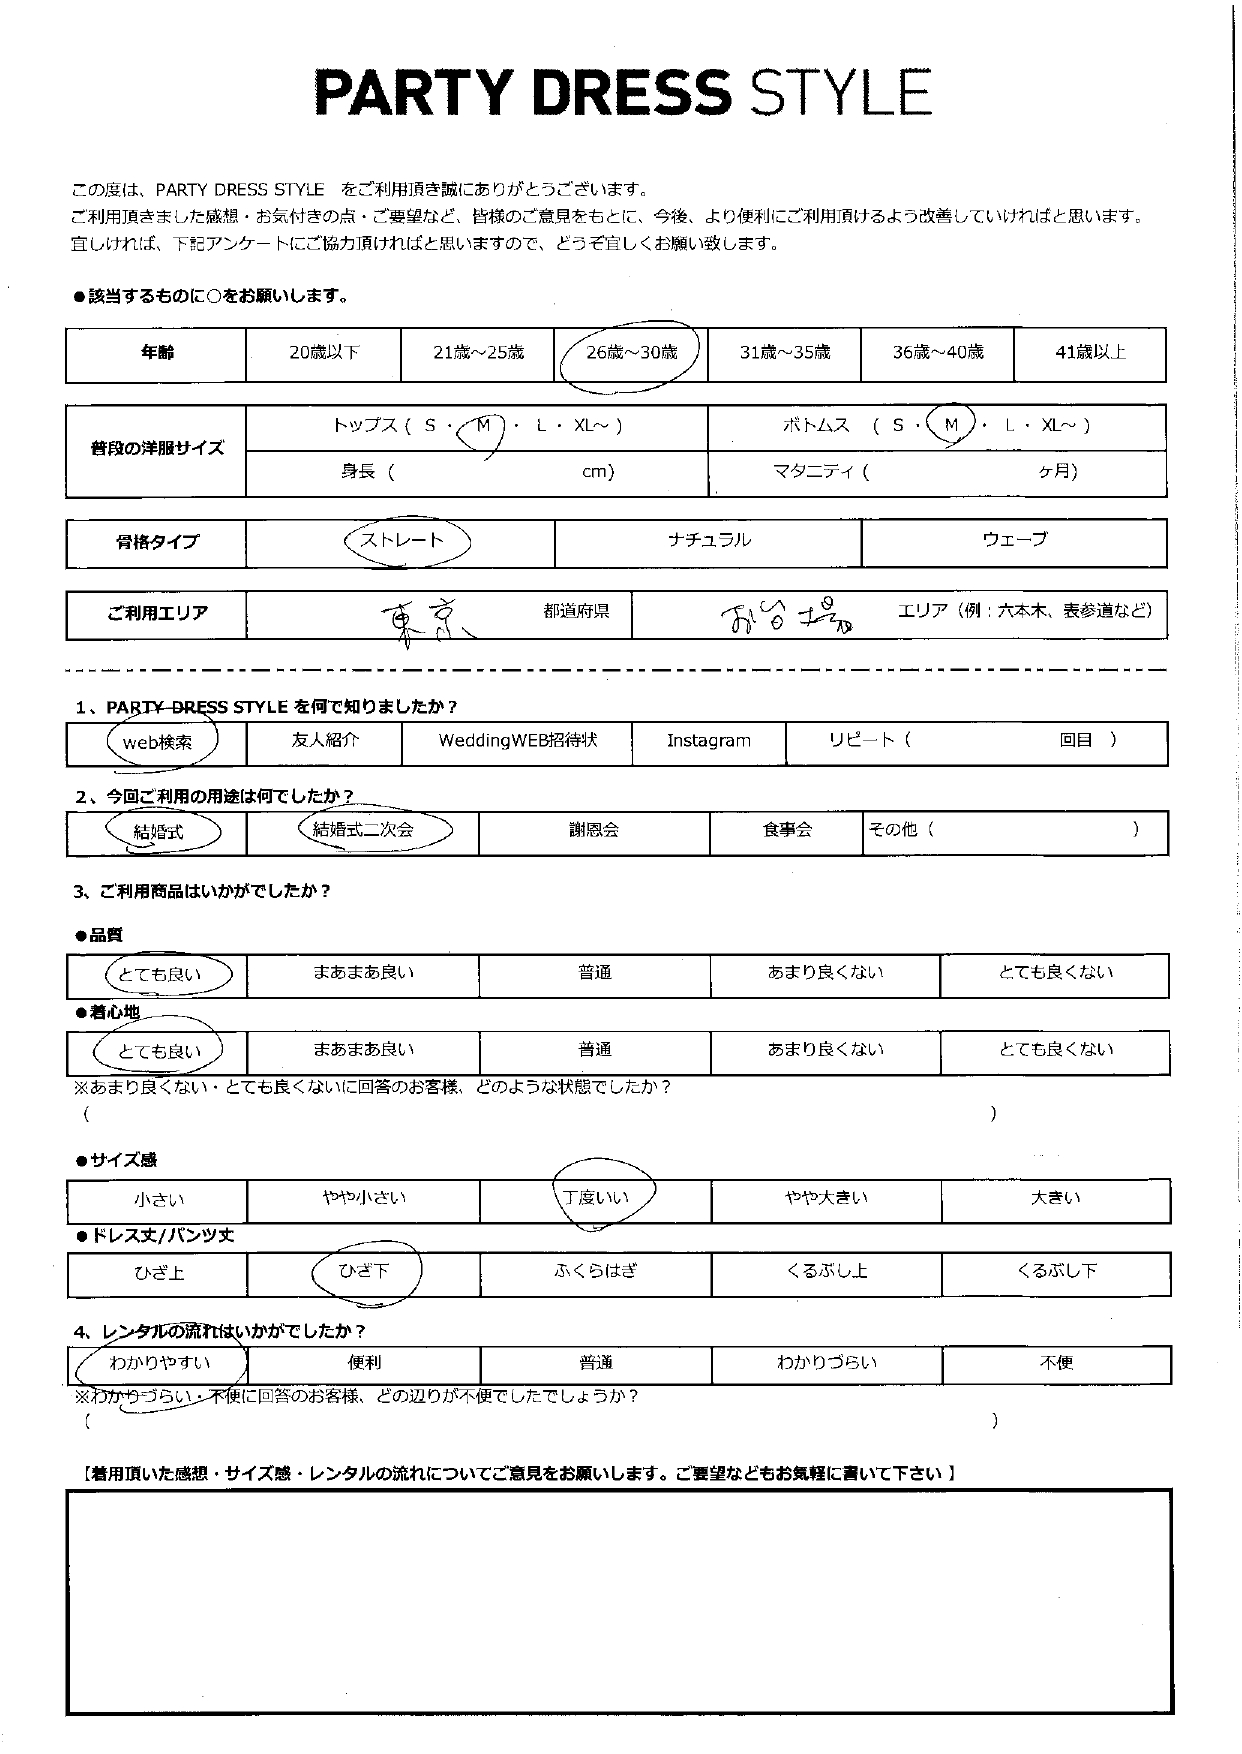 PARTY DRESS STYLE
この度は、PARTY DRESS STYLE をご利用頂き誠にありがとうございます。
ご利用頂きました感想・お気付きの点・ご要望など、皆様のご意見をもとに、今後、より便利にご利用頂けるよう改善していければと思います。
宜しければ、下記アンケートにご協力頂ければと思いますので、どうぞ宜しくお願い致します。
●該当するものに○をお願いします。
年齢 20歳以下 21歳～25歳 26歳～30歳 31歳～35歳 36歳～40歳 41歳以上
普段の洋服サイズ トップス ( S ・ M ・ L ・ XL～ ) ボトムス ( S ・ M ・ L ・ XL～ )
身長 ( cm) マタニティ ( ヶ月)
骨格タイプ ストレート ナチュラル ウェーブ
ご利用エリア 東京 都道府県 お台場 エリア（例：六本木、表参道など）
1、PARTY DRESS STYLE を何で知りましたか？
web検索 友人紹介 WeddingWEB招待状 Instagram リピート ( 回目 )
2、今回ご利用の用途は何でしたか？
結婚式 結婚式二次会 謝恩会 食事会 その他 ( )
3、ご利用商品はいかがでしたか？
●品質
とても良い まあまあ良い 普通 あまり良くない とても良くない
●着心地
とても良い まあまあ良い 普通 あまり良くない とても良くない
※あまり良くない・とても良くないに回答のお客様、どのような状態でしたか？
( )
●サイズ感
小さい やや小さい 丁度いい やや大きい 大きい
●ドレス丈/パンツ丈
ひざ上 ひざ下 ふくらはぎ くるぶし上 くるぶし下
4、レンタルの流れはいかがでしたか？
わかりやすい 便利 普通 わかりづらい 不便
※わかりづらい・不便に回答のお客様、どの辺りが不便でしたでしょうか？
( )
【着用頂いた感想・サイズ感・レンタルの流れについてご意見をお願いします。ご要望などもお気軽に書いて下さい 】